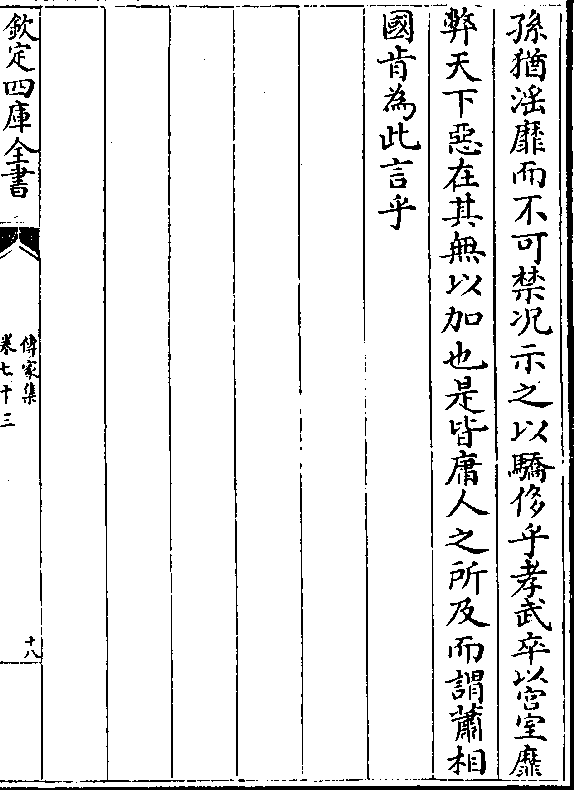 孫猶淫靡而不可禁况示之以驕侈乎孝武卒以宫室靡
弊天下惡在其無以加也是皆庸人之所及而謂蕭相
國肯為此言乎
欽定四庫全書
傳家集
卷七十三
十八